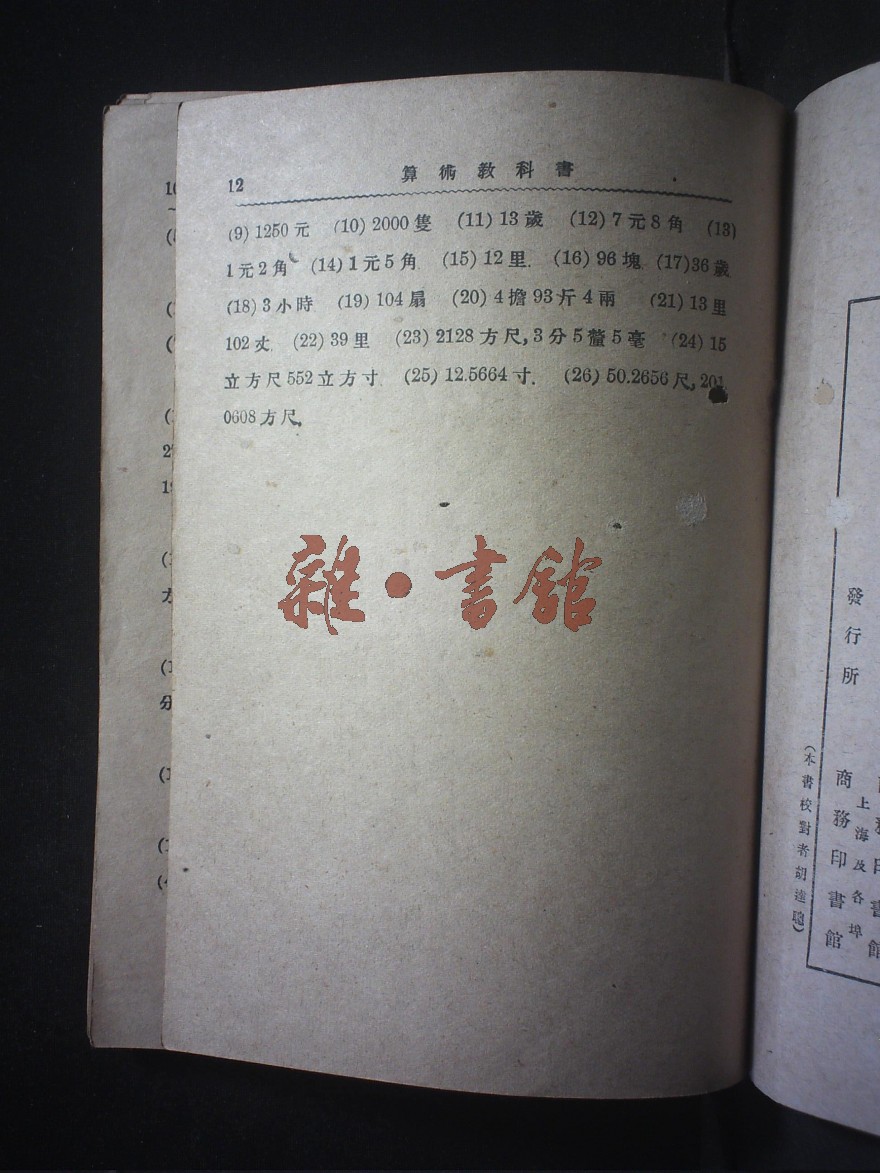 12
算術教科書
(9) 1250元 (10) 2000隻 (11) 13歲 (12) 7元8角 (13)
1元2角 (14) 1元5角 (15) 12里. (16) 96塊. (17) 36歲
(18) 3小時 (19) 104扇 (20) 4擔93斤4兩 (21) 13里
102丈. (22) 39里 (23) 2128方尺,3分5釐5毫 (24) 15
立方尺552立方寸 (25) 12.5664寸. (26) 50.2656尺,201.
0608方尺.
雜·書館
發行所
商務印書館
上海及各埠
(本書校對者胡達聰)